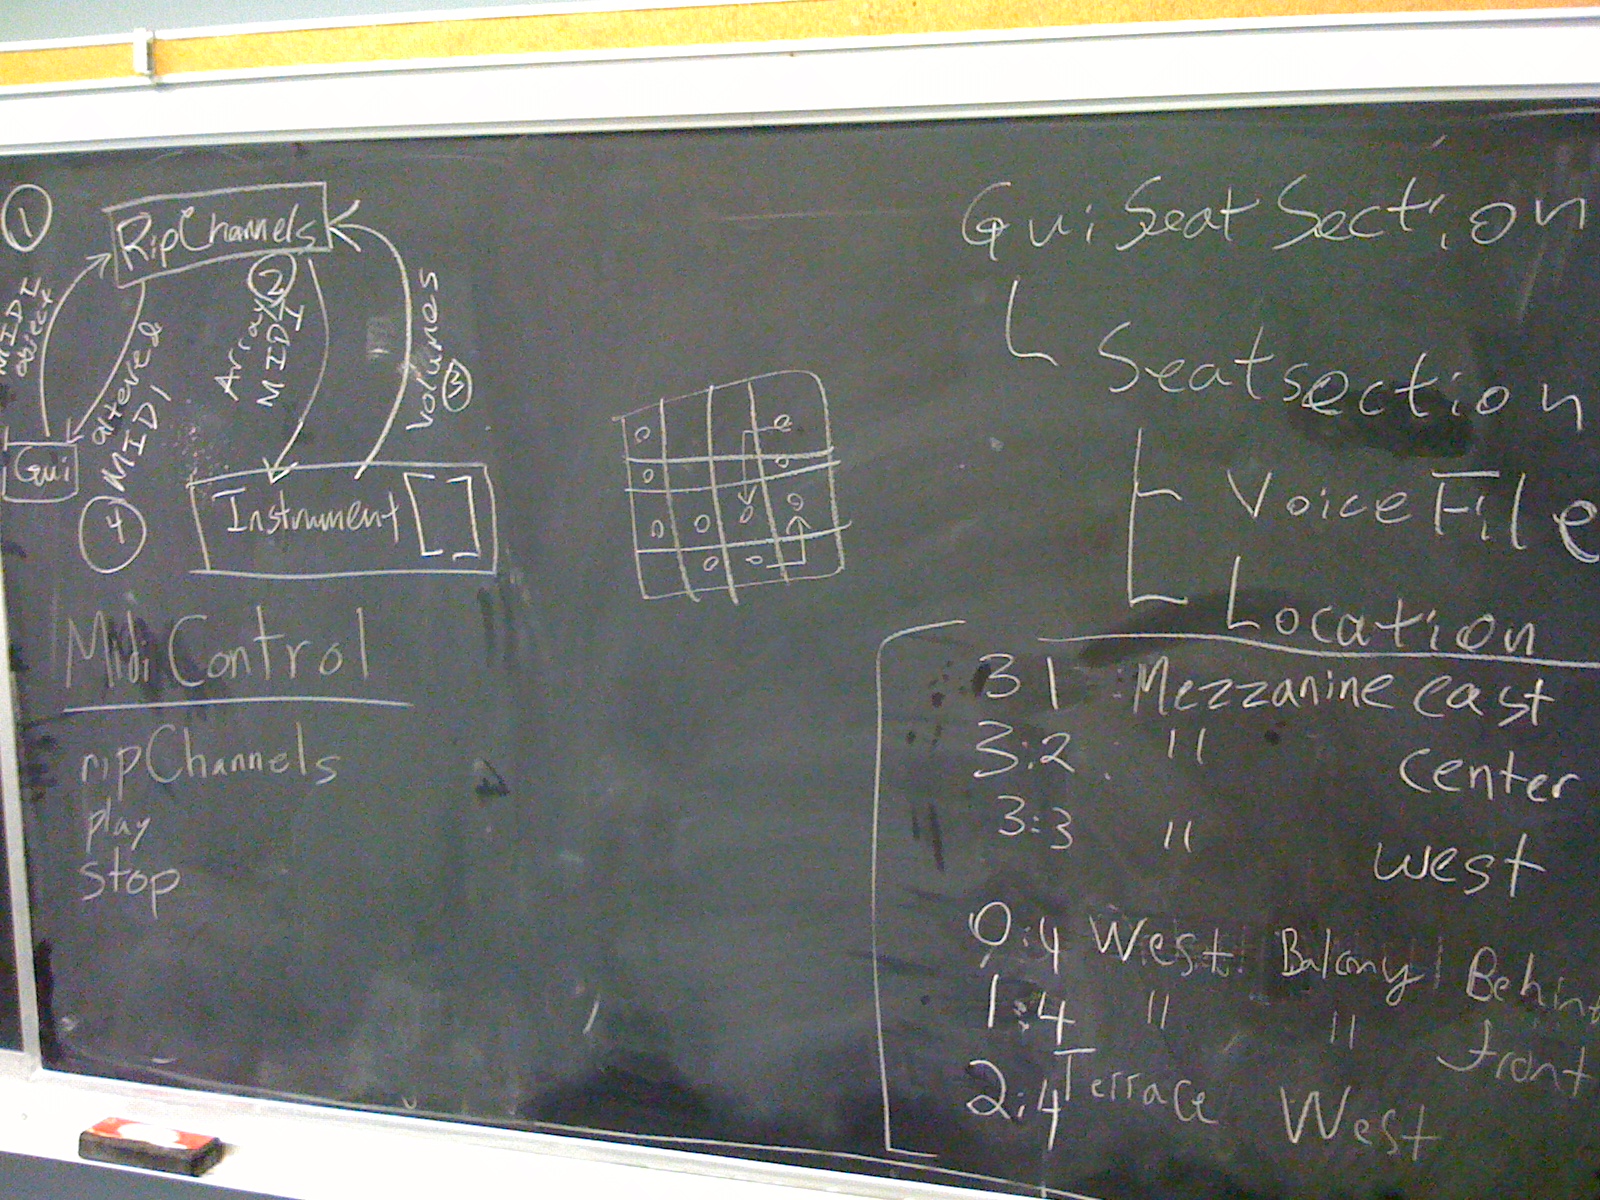 1
RipChannels
MIDI
object
altered
MIDI
2
Array
MIDI
volumes
3
Gui
4
Instrument []
Midi Control
ripChannels
play
stop
GuiSeatSection
Seatsection
VoiceFile
Location
3 1 Mezzanine east
3:2 " center
3:3 " west
0:4 West Balcony Behind
1:4 " " front
2:4 Terrace West